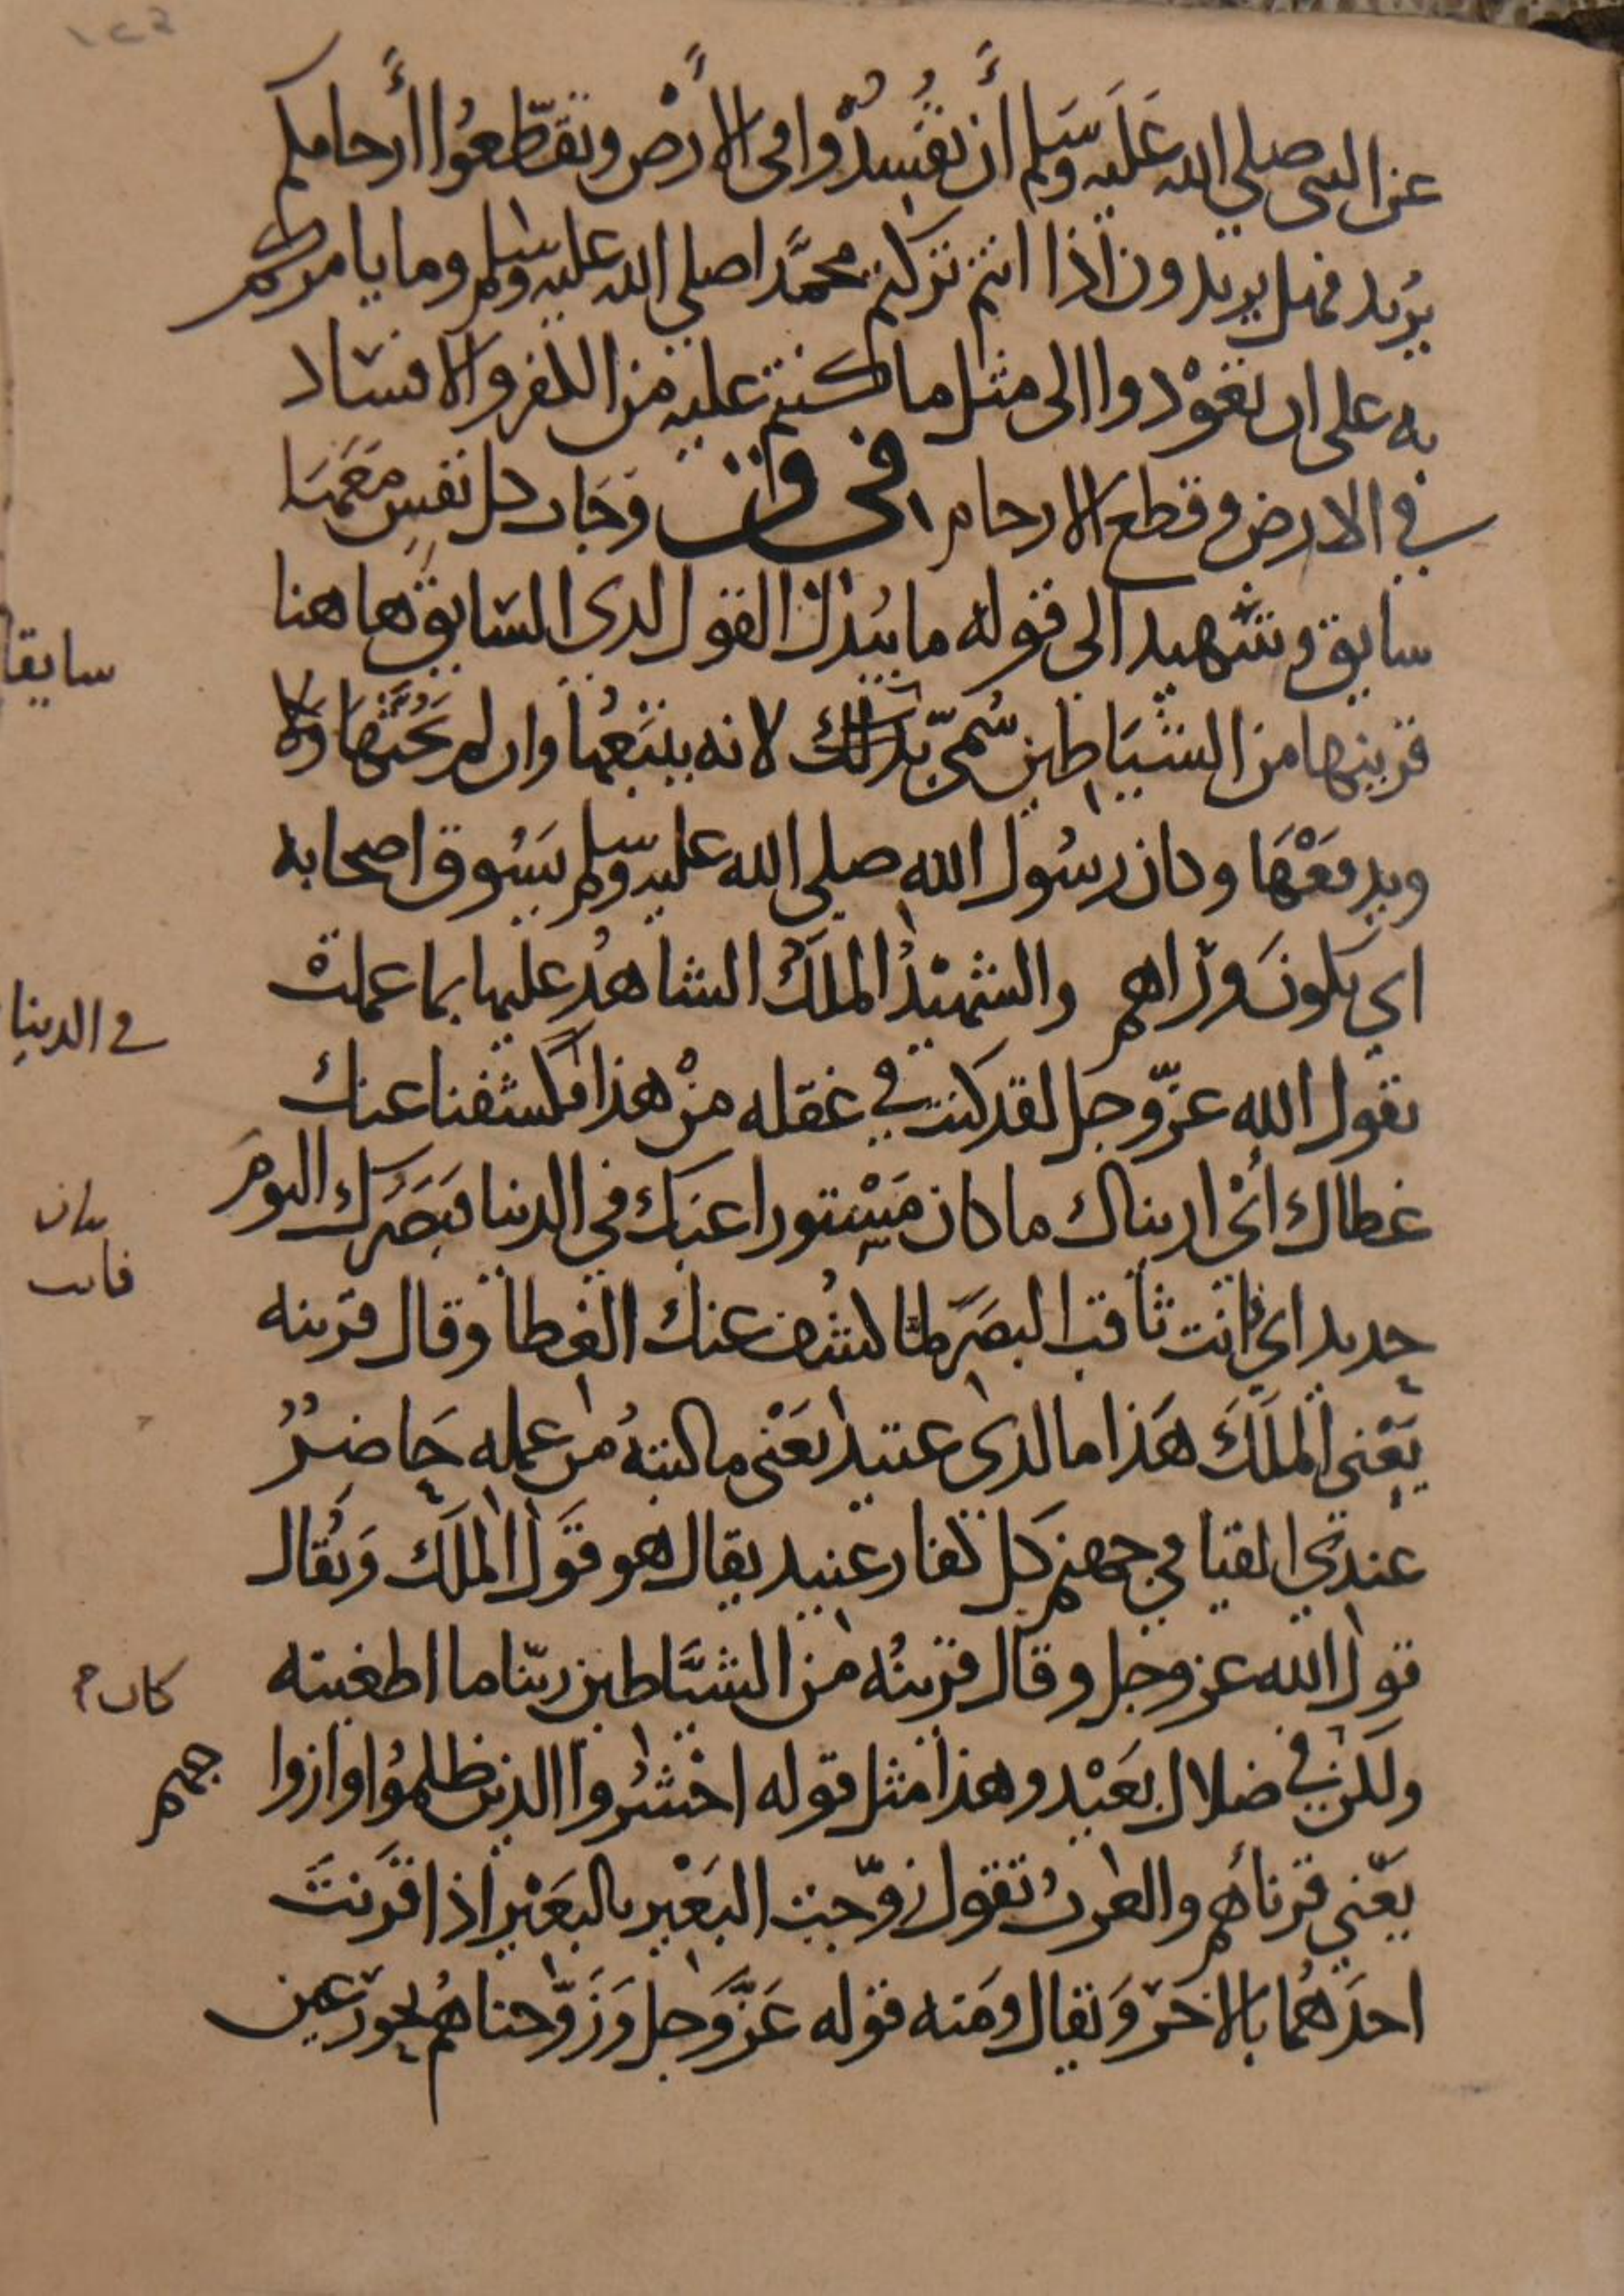 عن النبي صلى الله عليه وسلم أن تفسدوا في الأرض وتقطعوا أرحامكم
يريد فهل يريدون اذا انتم تركتم محمدا صلى الله عليه وسلم وما يامركم
به على ان تعودوا الى مثل ما كنتم عليه من الكفر والافساد
في الارض وقطع الارحام في ق وجات كل نفس معها
سايق وشهيد الى قوله ما يبدل القول لدى السايق هاهنا
قرينها من الشياطين سمى بذلك لانه يتبعها وان لم يحثها ولا
ويدفعها وكان رسول الله صلى الله عليه وسلم يسوق اصحابه
اي يكون وراهم والشهيد الملك الشاهد عليها بما عملت
يقول الله عز وجل لقد كنت في غفله من هذا فكشفنا عنك
غطاك اي اريناك ما كان مستورا عنك في الدنيا فبصرك اليوم
حديد اي فانت ثاقب البصر لما كشف عنك الغطا وقال قرينه
يعني الملك هذا ما لدى عتيد يعني ما كتبته من عمله حاضر
عندي القيا في جهنم كل كفار عنيد يقال هو قول الملك ويقال
قول الله عز وجل وقال قرينه من الشياطين ربنا ما اطغيته
ولكن في ضلال بعيد وهذا مثل قوله احشروا الذين ظلموا وازوا
جهم
يعني قرناهم والعرب تقول زوجت البعير بالبعير اذا قرنت
احدهما بالاخر ويقال ومنه قوله عز وجل وزوجناهم بحور عين
سايقا
في الدنيا
كان